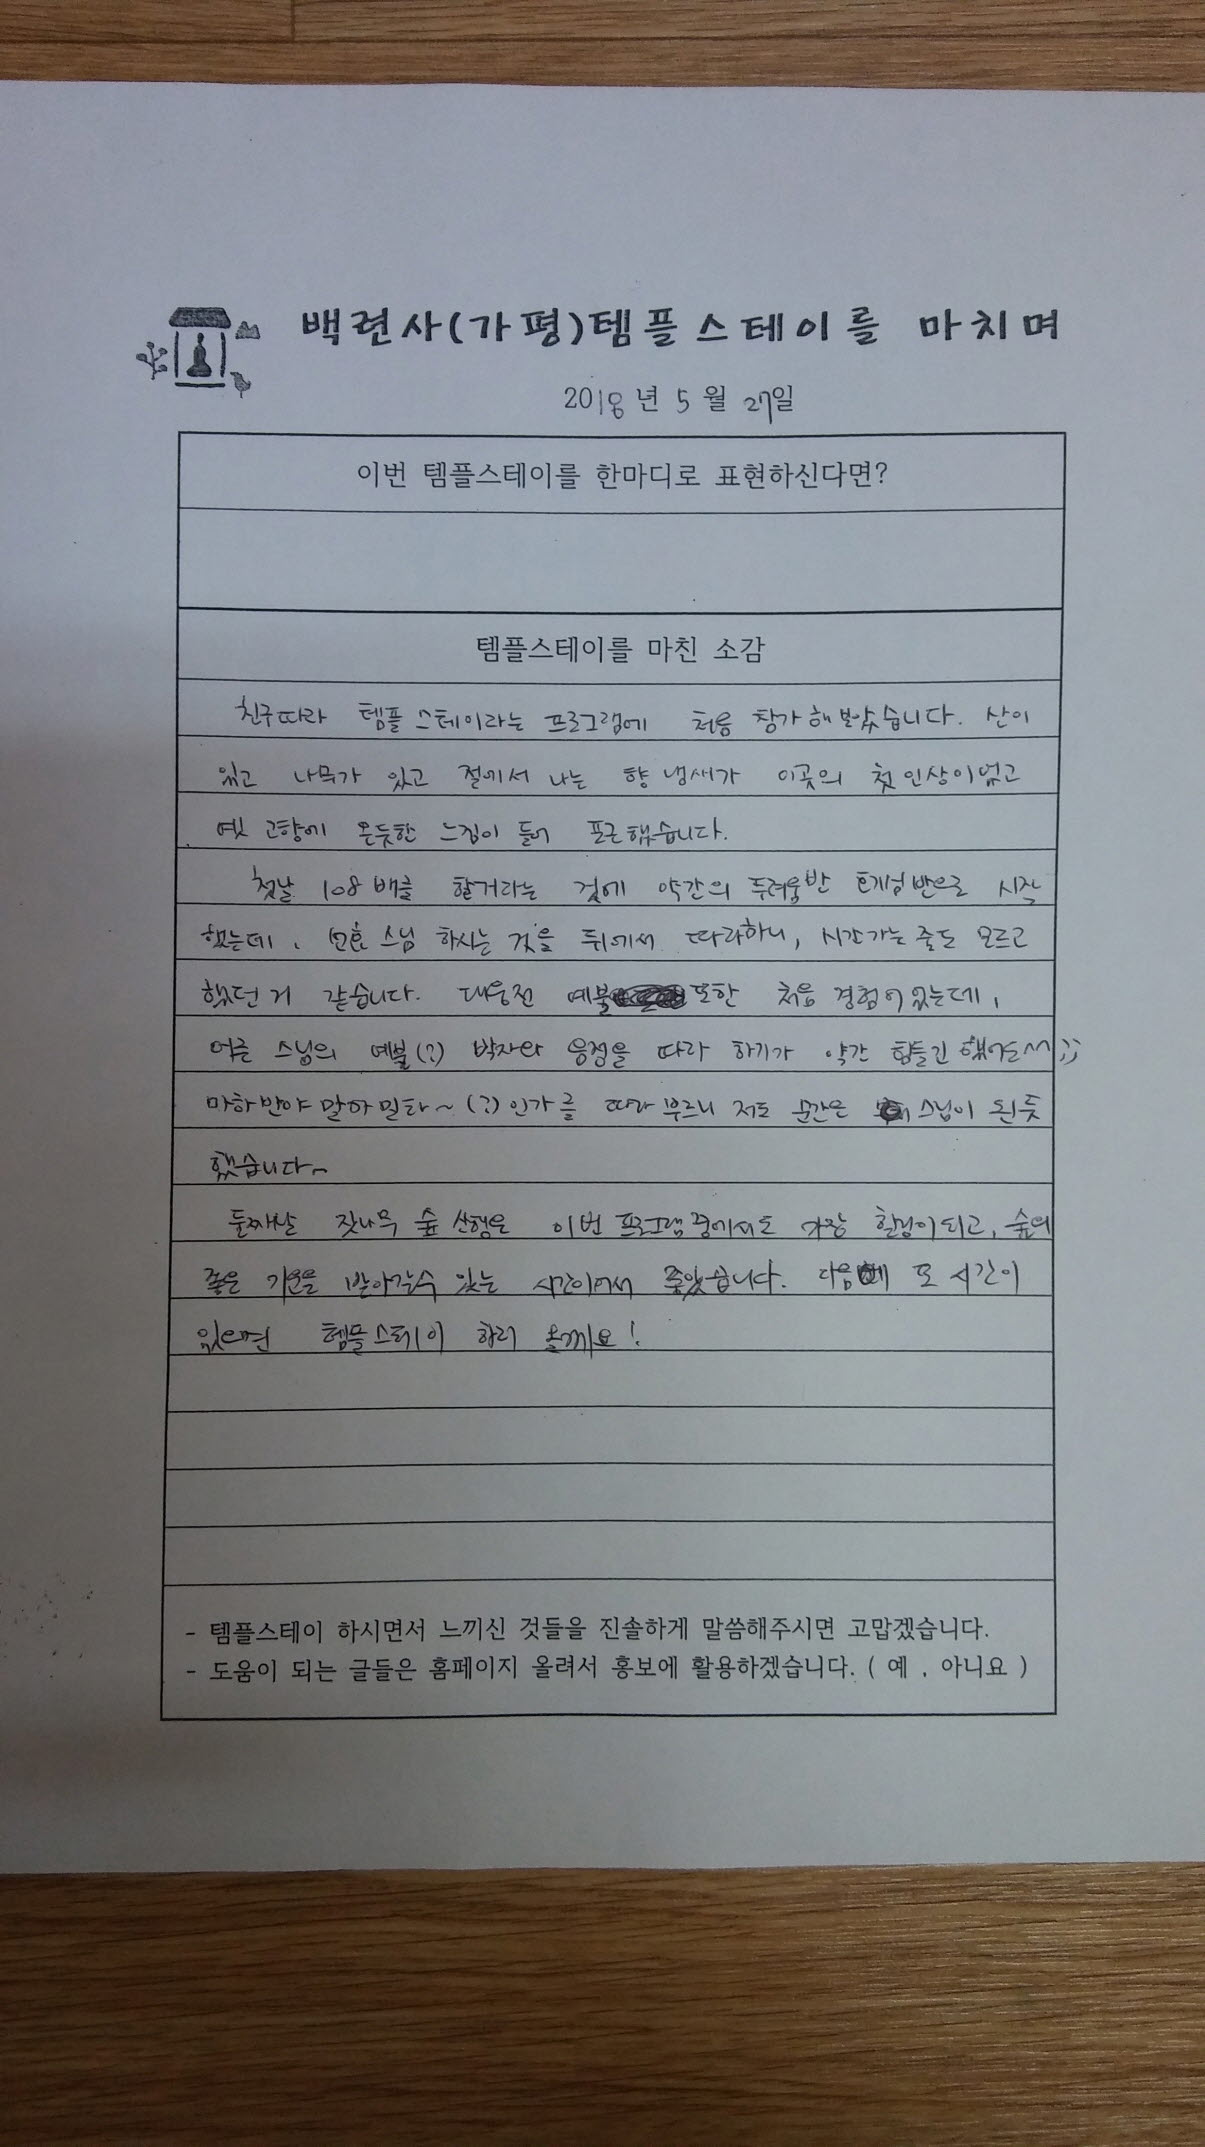 백련사(가평)템플스테이를 마치며
2018년 5월 27일
이번 템플스테이를 한마디로 표현하신다면?
템플스테이를 마친 소감
친구따라 템플스테이라는 프로그램에 처음 참가해보았습니다. 산이
있고 나무가 있고 절에서 나는 향 냄새가 이곳의 첫인상이었고
옛 고향에 온듯한 느낌이 들어 포근했습니다.
첫날 108배를 할거라는 것에 약간의 두려움반 반으로 시작
했는데, 스님 하시는 것을 뒤에서 따라하니, 시간가는줄도 모르고
했던거 같습니다. 대웅전 예불 또한 처음 경험이었는데,
스님의 예불(?) 박자와 음정을 따라 하기가 약간 힘들긴 했어도 ;;
마하반야 말아밀타~(?)인가를 따라 부르니 저도 순간은 스님이 된듯
했습니다~
둘째날 잣나무 숲 산행은 이번 프로그램중에서도 가장 힐링이되고, 숲의
좋은 기운을 받아갈수 있는 시간이어서 좋았습니다. 다음에 또 시간이
있으면 템플스테이 하러 올께요!
- 템플스테이 하시면서 느끼신 것들을 진솔하게 말씀해주시면 고맙겠습니다.
- 도움이 되는 글들은 홈페이지 올려서 홍보에 활용하겠습니다. ( 예 , 아니요 )